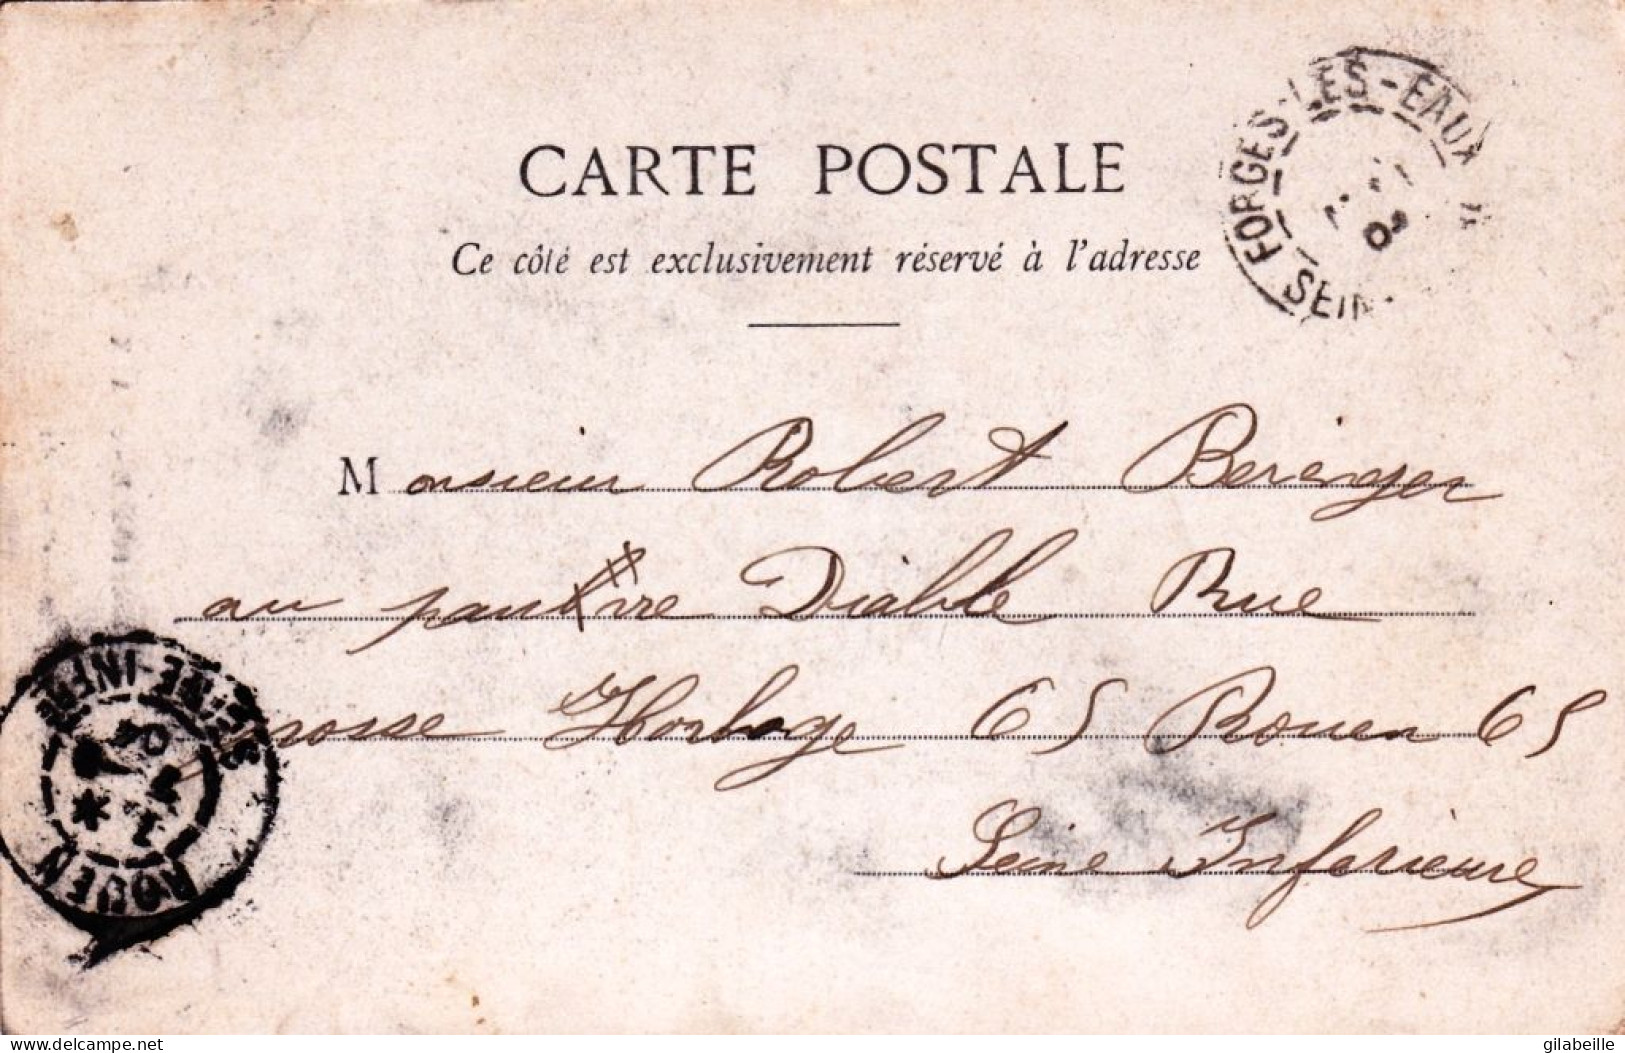 CARTE POSTALE
FORGES-LES-EAUX
SEIN
Ce côté est exclusivement réservé à l'adresse
Monsieur Robert Berenger
au pauvre Diable Rue
grosse Horloge 65 Rouen 65
Seine Inferieure
ROUEN
SEINE-INFRE
04
www.delcampe.net
gilabeille